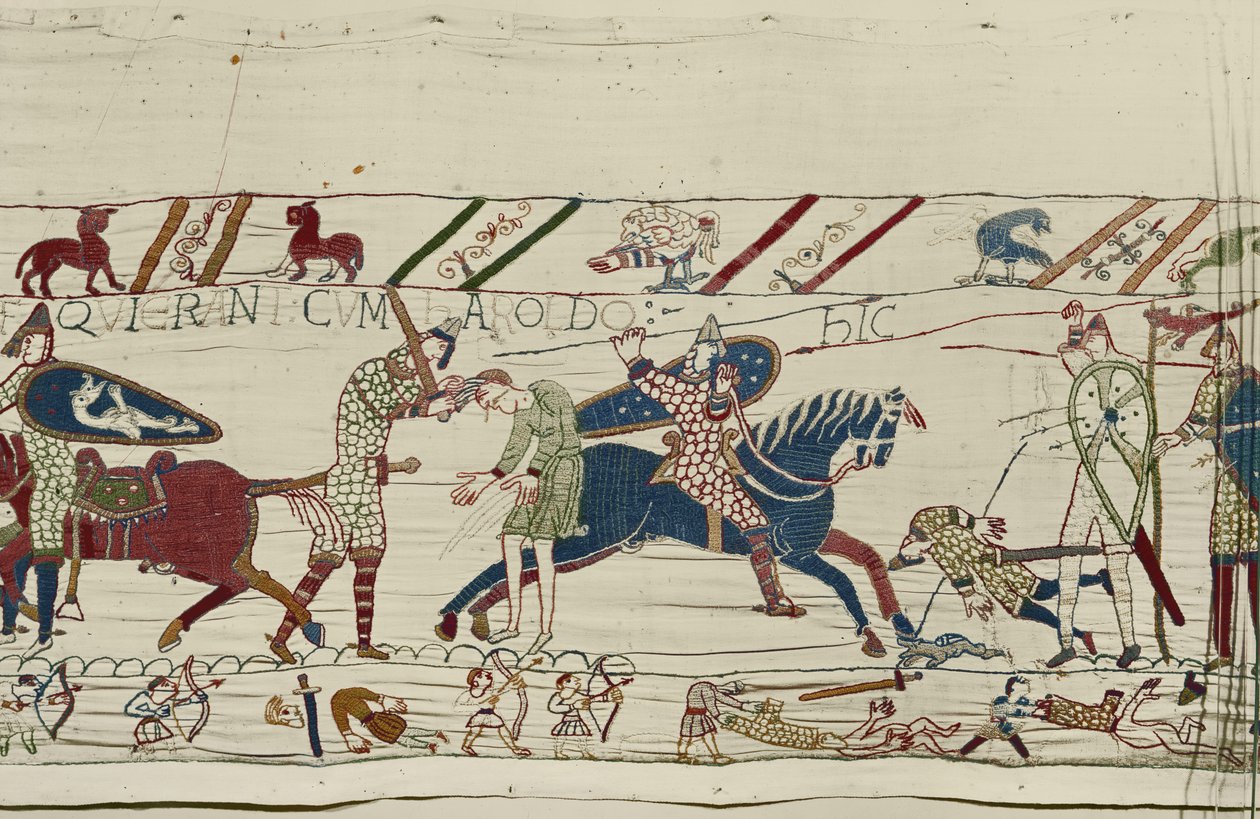 QVIERANT: CVM hAROLDO:
hIC